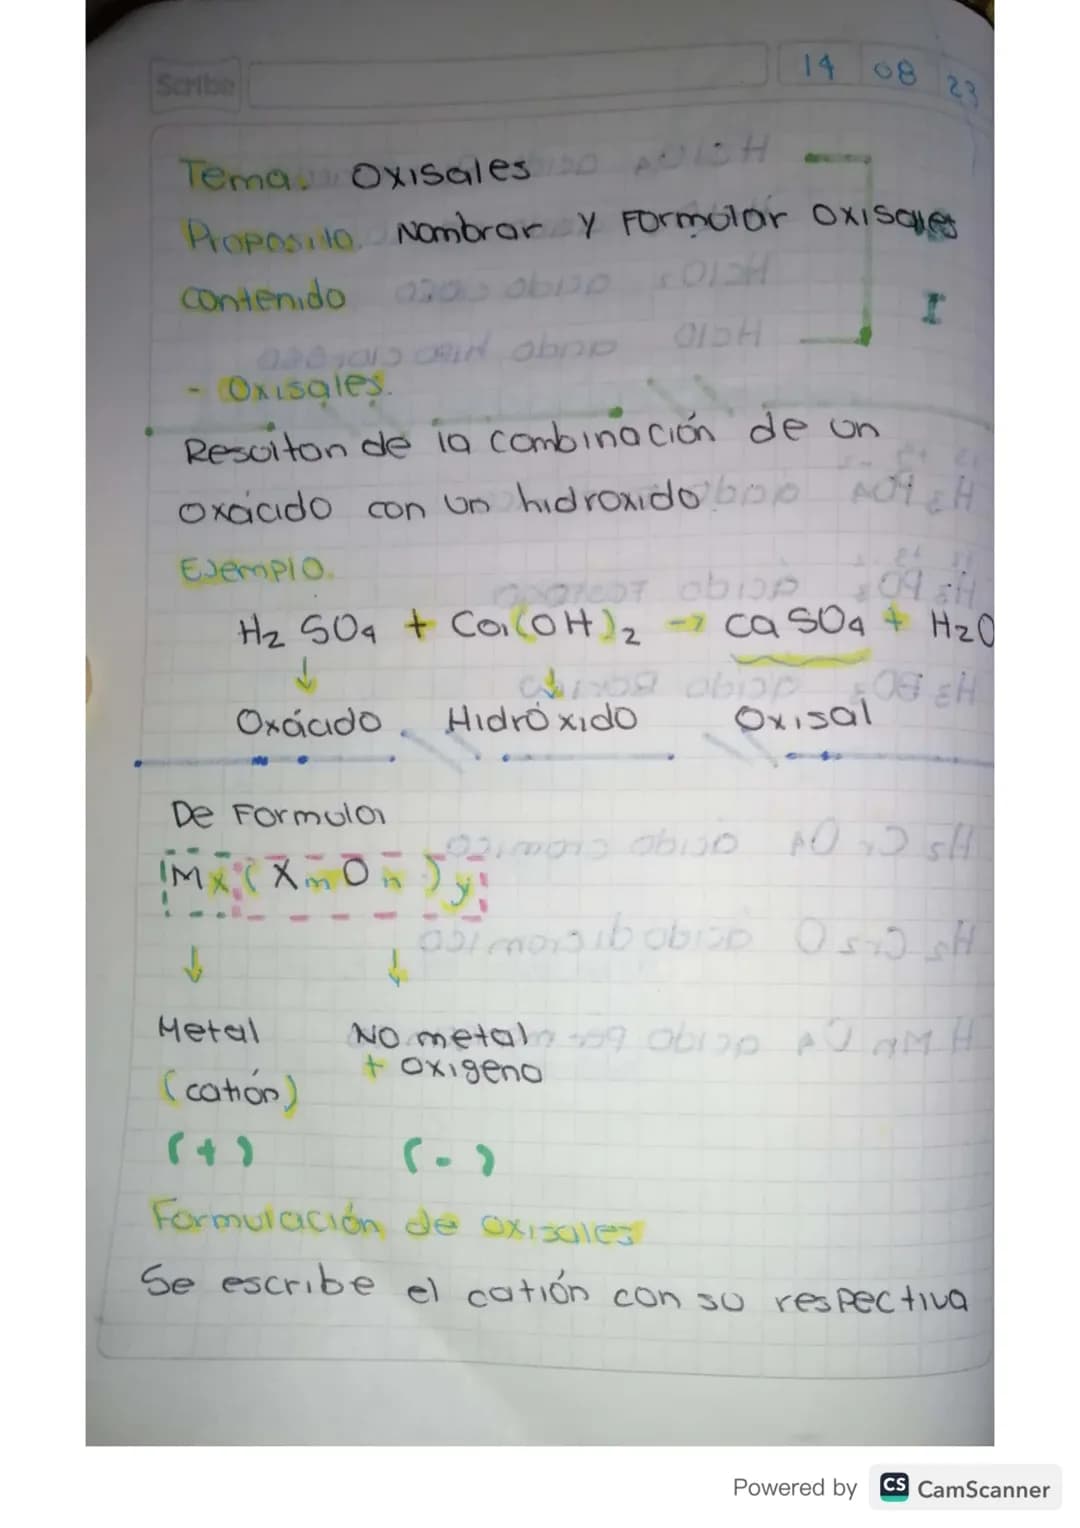 Scribe
14 08 23
Tema. Oxisales
Proposito. Nombrar y Formular oxisales
contenido
I
- Oxisales.
Resulton de la combinación de un
oxácido con un hidroxido
Ejemplo.
H₂ SO₄ + Ca(OH)₂ → CaSO₄ + H₂O
Oxácido Hidróxido Oxisal
De Formular
Mx(XmOn)y
Metal No metal
+ oxigeno
(catión)
(+) (-)
Formulación de oxisales
Se escribe el catión con su respectiva
Powered by CS CamScanner